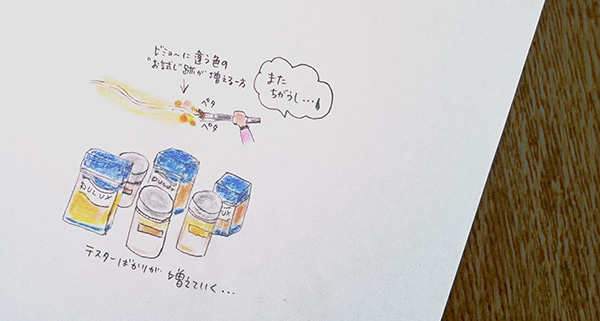 ビミョ〜に違う色の
"お試し"跡が増える一方
また
ちがうし...
ペタ
ペタ
DULUX
DULUX
UX
テスターばかりが増えていく...